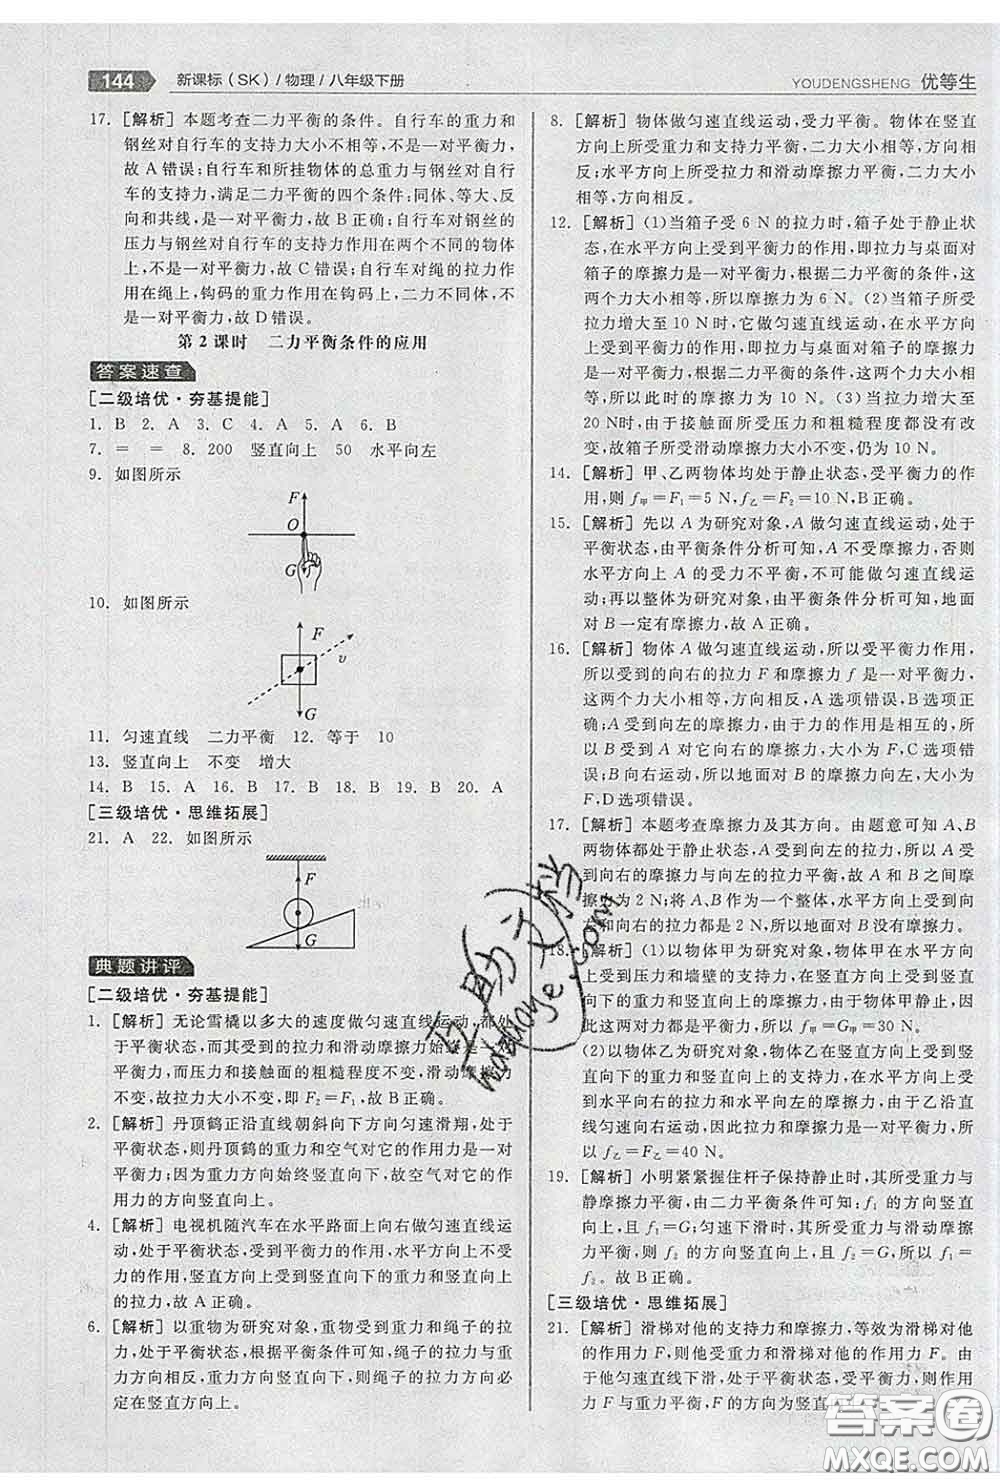 144 新课标（SK）/物理/八年级下册
YOUDENGSHENG 优等生
17. [解析] 本题考查二力平衡的条件。自行车的重力和
钢丝对自行车的支持力大小不相等,不是一对平衡力,
故 A 错误;自行车和所挂物体的总重力与钢丝对自行
车的支持力,满足二力平衡的四个条件:同体、等大、反
向和共线,是一对平衡力,故 B 正确;自行车对钢丝的
压力与钢丝对自行车的支持力作用在两个不同的物体
上,不是一对平衡力,故 C 错误;自行车对绳的拉力作
用在绳上,钩码的重力作用在钩码上,二力不同体,不是
一对平衡力,故 D 错误。
第 2 课时 二力平衡条件的应用
答案速查
[二级培优·夯基提能]
1. B 2. A 3. C 4. A 5. A 6. B
7. = = 8. 200 竖直向上 50 水平向左
9. 如图所示
F
O
G
10. 如图所示
F
v
G
11. 匀速直线 二力平衡 12. 等于 10
13. 竖直向上 不变 增大
14. B 15. A 16. B 17. A 18. B 19. B 20. A
[三级培优·思维拓展]
21. A 22. 如图所示
F
G
典题讲评
[二级培优·夯基提能]
1. [解析] 无论雪橇以多大的速度做匀速直线运动,都处
于平衡状态,而其受到的拉力和滑动摩擦力始终是一对
平衡力;因为压力和接触面的粗糙程度不变,滑动摩擦力
不变,故拉力大小不变,即 F₂=F₁,故 B 正确。
2. [解析] 丹顶鹤正沿直线朝斜向下方向匀速滑翔,处于
平衡状态,则丹顶鹤的重力和空气对它的作用力是一对
平衡力;因为重力方向始终竖直向下,故空气对它的作
用力的方向竖直向上。
4. [解析] 电视机随汽车在水平路面上向右做匀速直线运
动,处于平衡状态,受到平衡力的作用,水平方向上不受
力的作用,竖直方向上受到竖直向下的重力和竖直向上
的拉力,故 A 正确。
6. [解析] 以重物为研究对象,重物受到重力和绳子的拉
力,处于平衡状态,根据平衡条件可知,绳子的拉力与重
力方向相反,重力方向竖直向下,则绳子的拉力方向必
定在竖直方向上。
8. [解析] 物体做匀速直线运动,受力平衡。物体在竖直
方向上所受重力和支持力平衡,二力大小相等,方向相
反;水平方向上所受拉力和滑动摩擦力平衡,二力大小
相等,方向相反。
12. [解析] (1)当箱子受 6 N 的拉力时,箱子处于静止状
态,在水平方向上受到平衡力的作用,即拉力与桌面对
箱子的摩擦力是一对平衡力,根据二力平衡的条件,这
两个力大小相等,所以摩擦力为 6 N。(2)当箱子所受
拉力增大至 10 N 时,它做匀速直线运动,仍受到平衡
力的作用,即拉力与桌面对箱子的摩擦力是一对平衡
力,根据二力平衡的条件可知,这两个力的大小相等,
所以此时的摩擦力为 10 N。(3)当拉力增大至
20 N时,由于接触面所受压力和粗糙程度都没有改
变,故箱子所受滑动摩擦力大小不变,仍为 10 N。
14. [解析] 甲、乙两物体均处于静止状态,受平衡力的作
用,则 f甲=F₁=5 N,f乙=F₂=10 N,B正确。
15. [解析] 先以 A 为研究对象,A 做匀速直线运动,处于
平衡状态,由平衡条件分析可知,A 不受摩擦力,否则
水平方向上 A 的受力不平衡,不可能做匀速直线运
动;再以整体为研究对象,由平衡条件分析可知,地面
对 B 一定有摩擦力,故 A 正确。
16. [解析] 物体 A 做匀速直线运动,所以受平衡力作用,
所以受到的向右的拉力 F 和摩擦力 f 是一对平衡力,
这两个力大小相等,方向相反,A 选项错误,B 选项正
确;A 受到向左的摩擦力,由于力的作用是相互的,所
以 B 受到 A 对它向右的摩擦力,大小为F,C选项错
误;B 向右运动,所以地面对 B 的摩擦力向左,大于
F,D选项错误。
17. [解析] 本题考查摩擦力及其方向。由题意可知 A、B
两物体都处于静止状态,A 受到向左的拉力,B 受到
向右的拉力,两拉力相等,故 A 和 B 之间一定存在
摩擦力;把 A 和 B 作为一个整体,水平方向上受到向
左和向右的拉力都是 2 N,所以地面对 B没有摩擦力。
18. [解析] (1)以物体甲为研究对象,物体甲在水平方向
上受到压力和墙壁的支持力,在竖直方向上受到竖直
向下的重力和竖直向上的摩擦力,由于物体甲静止,因
此这两对力是平衡力,故 f甲=G甲=30 N。
(2)以物体乙为研究对象,物体乙在竖直方向上受到重
力和竖直向上的支持力,在水平方向上受到水平向右
的拉力和水平向左的摩擦力的作用;由于乙沿直线向
右匀速运动,因此拉力和摩擦力是平衡力,
所以 f乙=F乙=40 N。
19. [解析] 小明紧紧握住杆子保持静止时,其所受重力与
静摩擦力平衡,由二力平衡条件可知:f₁的方向竖直向
上,且 f₁=G;匀速下滑时,其所受重力与滑动摩擦
力平衡,则 f₂ 的方向竖直向上,且 f₂=G,所以 f₁=
f₂。故 B 正确。
[三级培优·思维拓展]
21. [解析] 滑梯对他的支持力和摩擦力,等效为滑梯对他
的作用力 F,则他受重力和滑梯对他的作用力 F。由
于他匀速直线下滑,处于平衡状态,受平衡力,则作用
力 F 与重力大小相等、方向相反,即方向竖直向上。
互助文档
huzhuwendang.com
答案圈
MXQE.COM